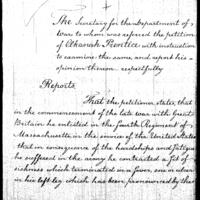 The Secretary for the Department of
War to whom was referred the petition
of Elkanah Prentice with instruction
to examine the same, and report his
opinion thereon respectfully
Reports
That the petitioner states, that
in the commencement of the late war with Great
Britain he enlisted in the fourth Regiment of
Massachusetts in the service of the United States
that in consequence of the hardships and fatigue
he suffered in the army he contracted a fit of
sickness which terminated in a fever, sore or ulcer
in his left leg which has been pronounced by the